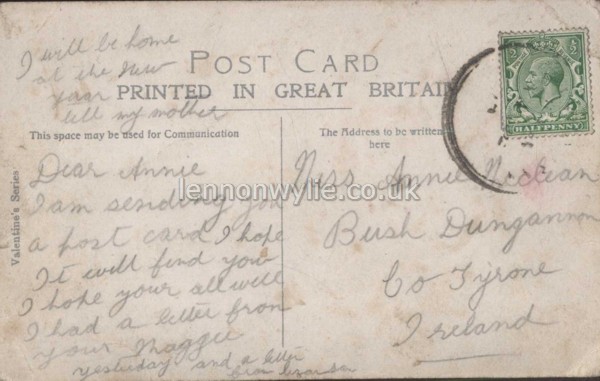 I will be home
at the New
year
tell my mother
POST CARD
PRINTED IN GREAT BRITAIN
This space may be used for Communication
The Address to be written
here
Valentine's Series
HALFPENNY
lennonwylie.co.uk
Dear Annie
I am sending you
a post card I hope
It will find you
I hope your all well
I had a letter from
your Maggie
yesterday and a letter
from
Miss Annie McClean
Bush Dungannon
Co Tyrone
Ireland